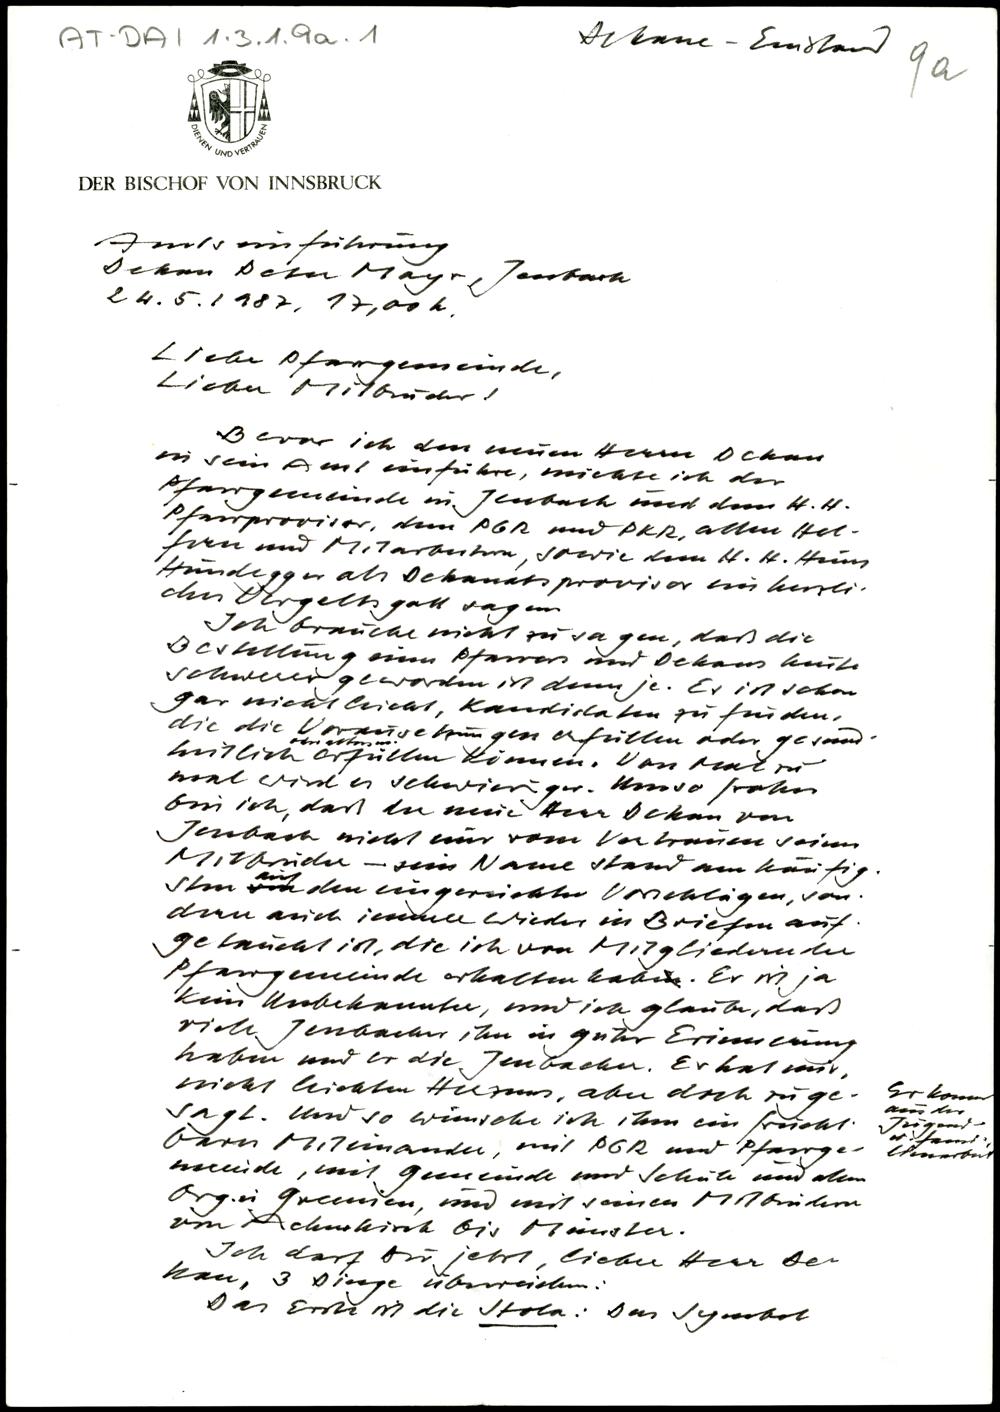 AT-DAI 1.3.1.9a.1
Dekane - Einstand
9a
DIENEN UND VERTRAUEN
DER BISCHOF VON INNSBRUCK
Amtseinführung
Dekan Peter Mayr, Jenbach
24.5.1987, 17,00 h.
Liebe Pfarrgemeinde,
Liebe Mitbrüder!
Bevor ich den neuen Herrn Dekan
in sein Amt einführe, möchte ich der
Pfarrgemeinde in Jenbach und dem H.H.
Pfarrprovisor, dem PGR und PKR, allen Hel-
fern und Mitarbeitern, sowie dem H.H. Hans
Hundegger als Dekanatsprovisor ein herzli-
ches Vergelts gott sagen
Ich brauche nicht zu sagen, daß die
Bestellung eines Pfarrers und Dekans heute
schwerer geworden ist denn je. Es ist schon
gar nicht leicht, Kandidaten zu finden,
die die Voraussetzungen erfüllen oder gesund-
heitlich erfüllen können. Von Mal zu
mal wird es schwieriger. Umso froher
bin ich, daß der neue Herr Dekan von
Jenbach nicht nur vom Vertrauen seiner
Mitbrüder - sein Name stand am häufig-
sten auf den eingereichten Vorschlägen, son-
dern auch immer wieder in Briefen auf-
getaucht ist, die ich von Mitgliedern der
Pfarrgemeinde erhalten habe. Er ist ja
kein Unbekannter, und ich glaube, daß
viele Jenbacher ihn in guter Erinnerung
haben und er die Jenbacher. Er hat mir,
nicht leichten Herzens, aber doch zuge-
sagt. Und so wünsche ich ihm ein frucht-
bares Miteinander, mit PGR und Pfarrge-
meinde, mit Gemeinde und Schule und allen
Org. u. Gremien, und mit seinen Mitbrüdern
von Achenkirch bis Münster.
Er kommt
aus der
Jugend-
u. Fami-
lienarbeit
Ich darf Dir jetzt, lieber Herr De-
kan, 3 Dinge überreichen:
Das Erste ist die Stola: Das Symbol